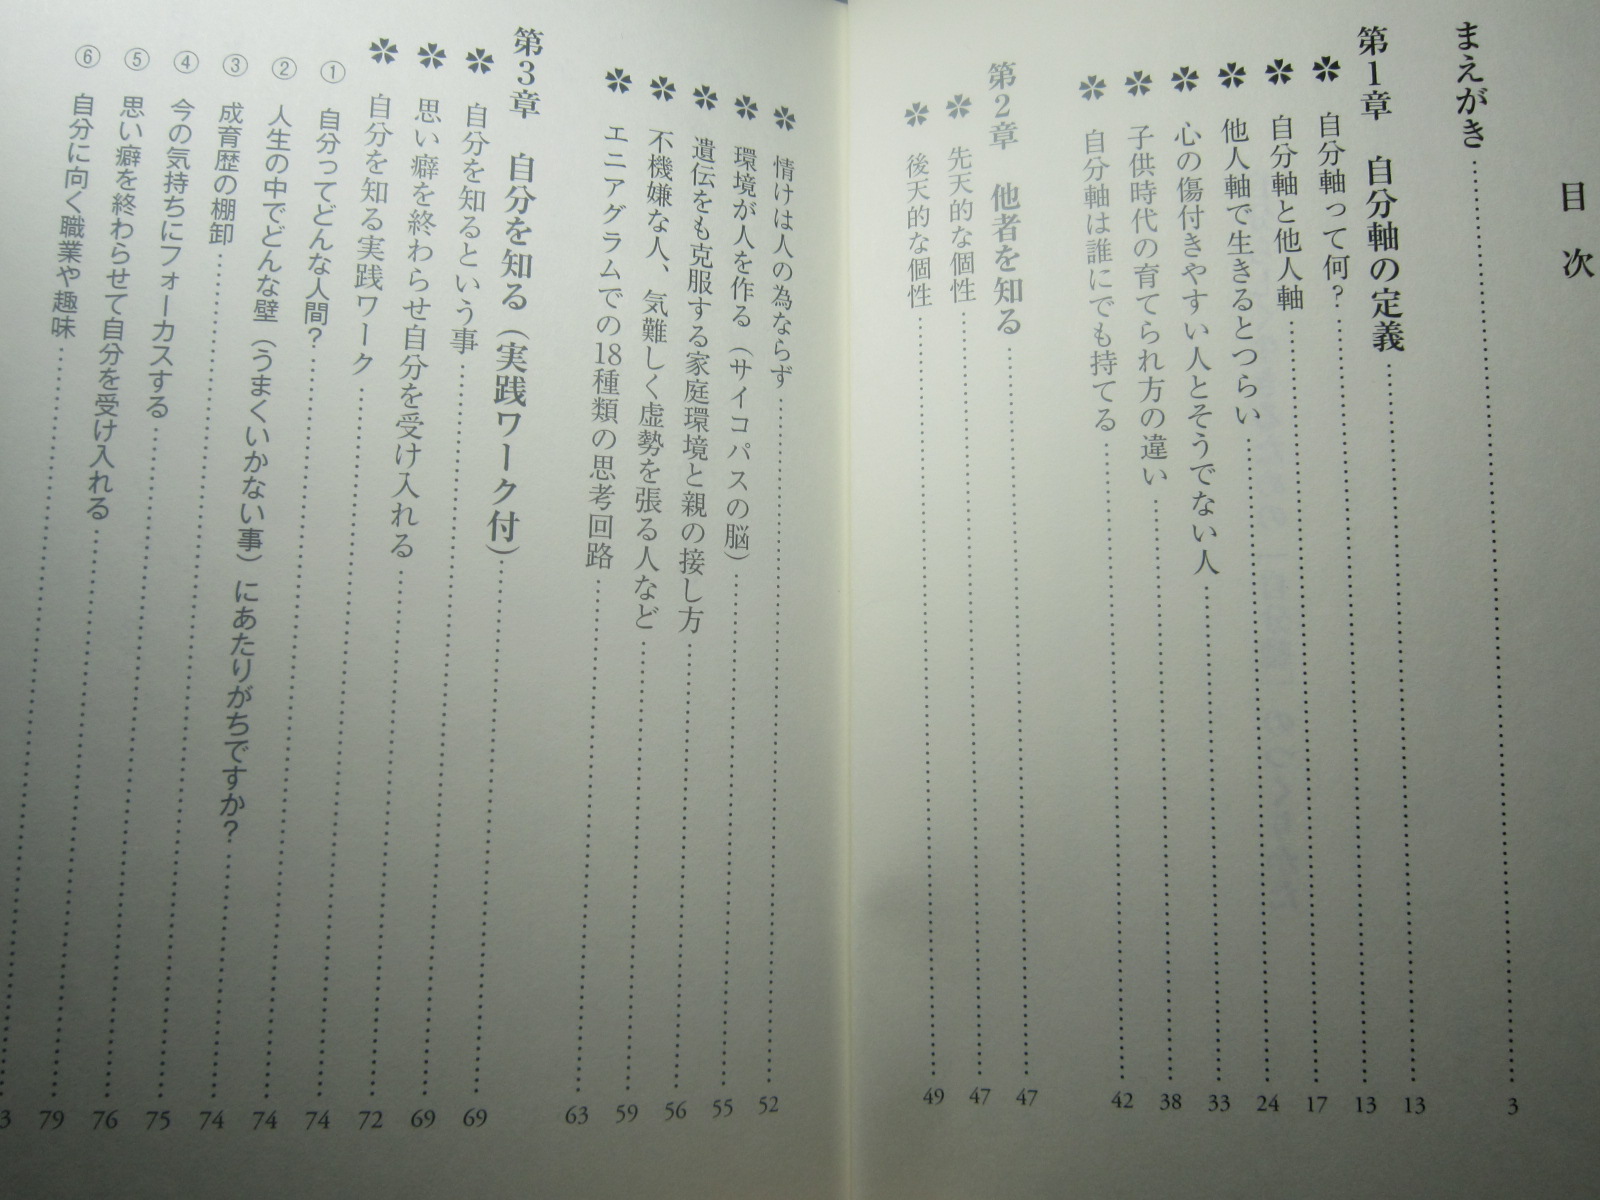 目次
まえがき……3
第1章 自分軸の定義……13
✽ 自分軸って何？……13
✽ 自分軸と他人軸……17
✽ 他人軸で生きるとつらい……24
✽ 心の傷付きやすい人とそうでない人……33
✽ 子供時代の育てられ方の違い……38
✽ 自分軸は誰にでも持てる……42
第2章 他者を知る……47
✽ 先天的な個性……47
✽ 後天的な個性……49
✽ 情けは人の為ならず……52
✽ 環境が人を作る（サイコパスの脳）……55
✽ 遺伝をも克服する家庭環境と親の接し方……56
✽ 不機嫌な人、気難しく虚勢を張る人など……59
✽ エニアグラムでの18種類の思考回路……63
第3章 自分を知る（実践ワーク付）……69
✽ 自分を知るという事……69
✽ 思い癖を終わらせ自分を受け入れる……72
✽ 自分を知る実践ワーク……74
① 自分ってどんな人間？……74
② 人生の中でどんな壁（うまくいかない事）にあたりがちですか？……74
③ 成育歴の棚卸……75
④ 今の気持ちにフォーカスする……76
⑤ 思い癖を終わらせて自分を受け入れる……79
⑥ 自分に向く職業や趣味……3